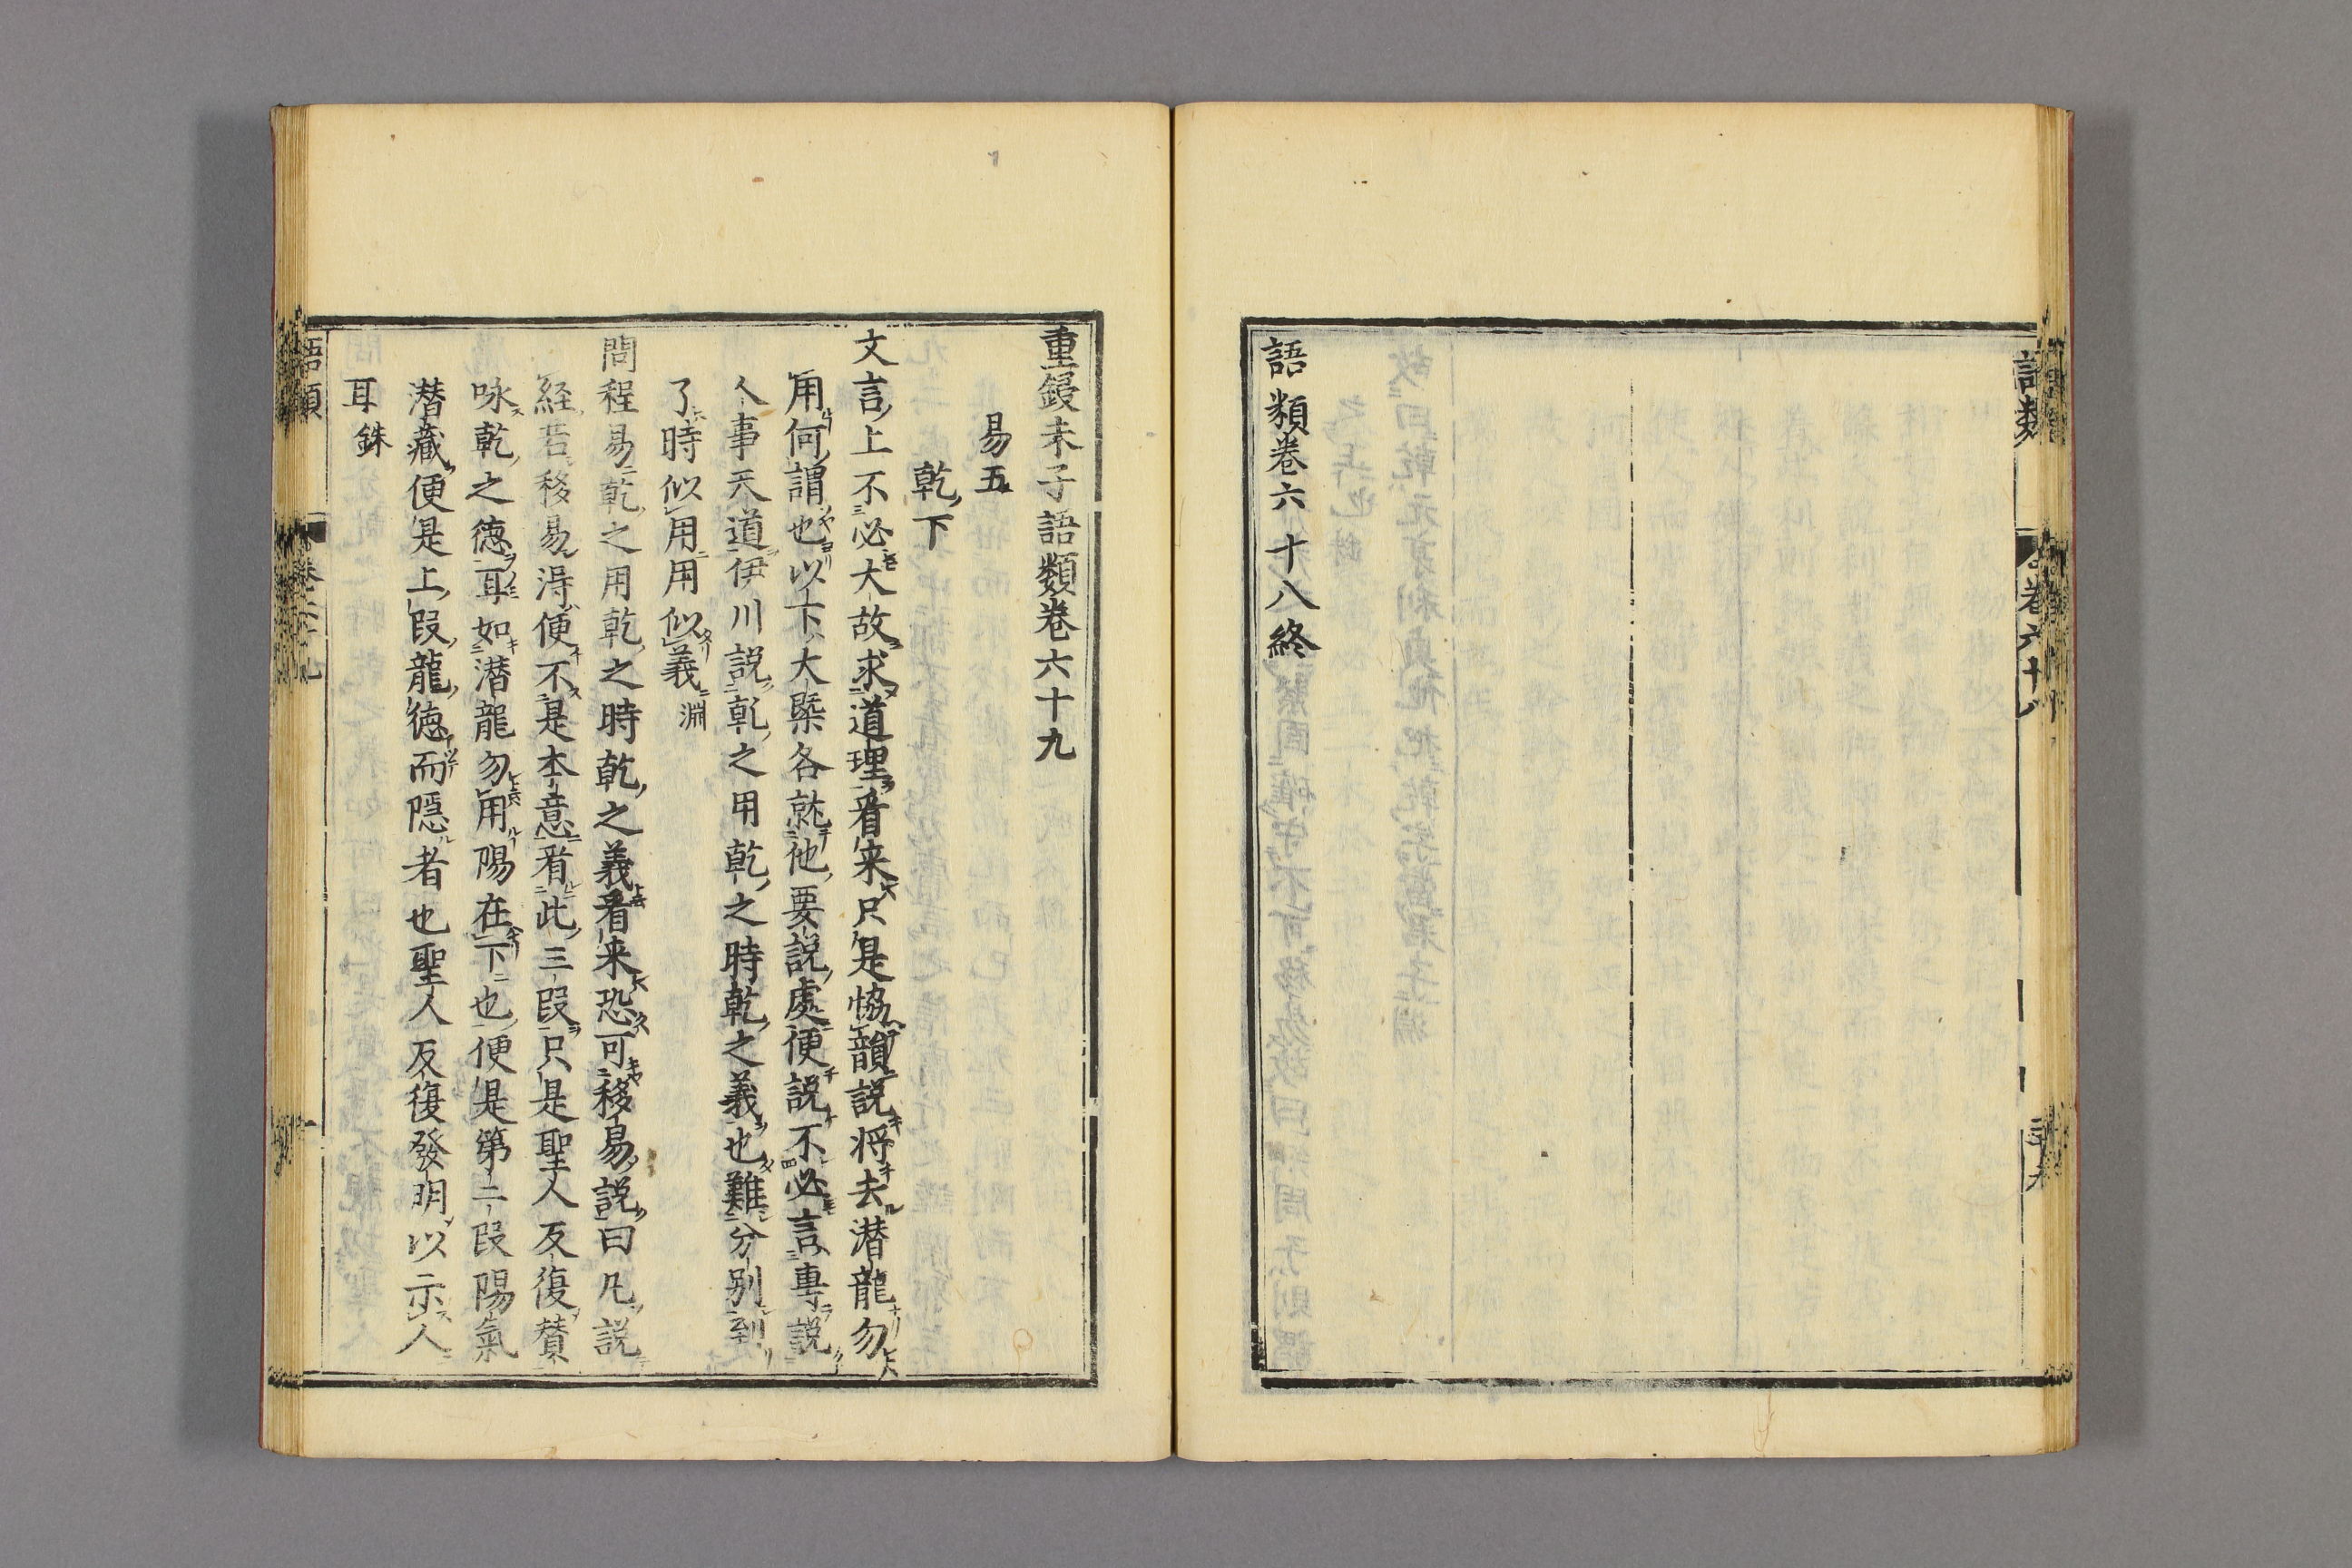 語類卷六十八終
重鋟朱子語類卷六十九
易五
乾下
文言上不必大故求道理看来只是恊韻說将去潜龍勿
用何謂也以下大槩各就他要說處便說不必言專說
人事天道伊川說乾之用乾之時乾之義也難分別到
了時似用用似義 淵
問程易乾之用乾之時乾之義看来恐可移易說曰凡說
経若移易淂便不是本意看此三叚只是聖人反復賛
咏乾之德耳如潜龍勿用陽在下也便是第二叚陽氣
潜藏便是上叚龍德而隠者也聖人反復發明以示人
耳 銖
語類 卷六十九 一